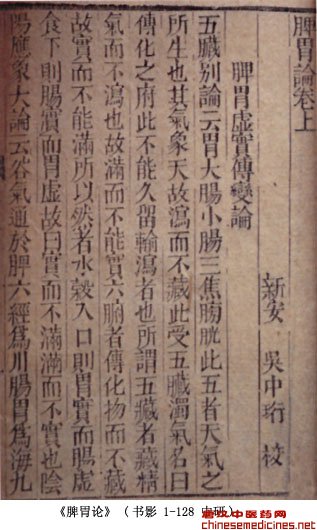 脾胃論卷上
新安 吳中珩 校
脾胃虛實傳變論
五臟別論云胃大腸小腸三焦膀胱此五者天氣之
所生也其氣象天故瀉而不藏此受五臟濁氣名曰
傳化之府此不能久留輸瀉者也所謂五藏者藏精
氣而不瀉也故滿而不能實六腑者傳化物而不藏
故實而不能滿所以然者水穀入口則胃實而腸虛
食下則腸實而胃虛故曰實而不滿滿而不實也陰
陽應象大論云谷氣通於脾六經爲川腸胃爲海九
《脾胃论》（书影 1-128 中研）
中医药网
www.chinesemedicines.net